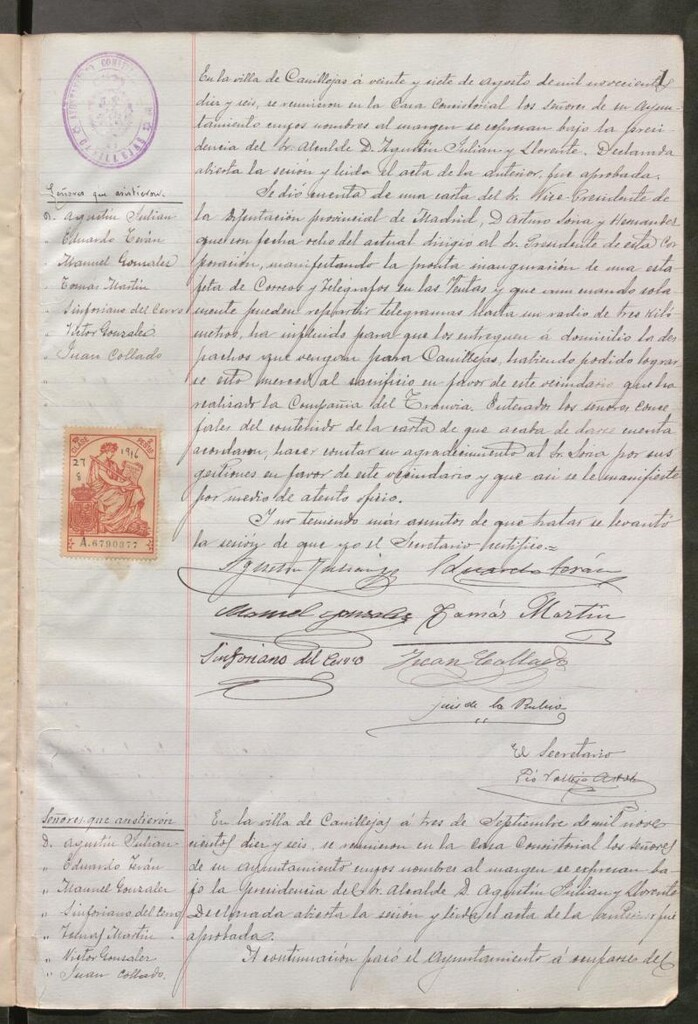 1
AYUNTAMIENTO CONSTITUCIONAL
CANILLEJAS
En la villa de Canillejas á veinte y siete de Agosto de mil novecientos
diez y seis, se reunieron en la Casa Consistorial los señores de su Ayun-
tamiento cuyos nombres al margen se expresan bajo la presi-
dencia del Sr. Alcalde D. Agustin Julian y Llorente. Declarada
abierta la sesión y leido el acta de la anterior, fue aprobada.
Señores que asistieron.
D. Agustin Julian
" Eduardo Terán
" Manuel Gonzalez
" Tomas Martin
" Sinforiano del Cerro
" Victor Gonzalez
" Juan Collado
Se dió cuenta de una carta del Sr. Vice-Presidente de
la Diputación provincial de Madrid, D. Arturo Soria y Hernandez
que con fecha ocho del actual dirigio al Sr. Presidente de esta Cor-
poración, manifestando la pronta inauguración de una esta-
feta de Correos y Telégrafos en las Ventas y que aun cuando sola-
mente pueden repartir telegramas hasta un radio de tres kiló-
metros, ha influido para que los entreguen á domicilio los des-
pachos que vengan para Canillejas, habiendo podido lograr-
se esta merced al sacrificio en favor de este vecindario que ha
realizado la Compañia del Tranvia. Enterados los señores conce-
jales del contenido de la carta de que acaba de darse cuenta
acordaron, hacer constar su agradecimiento al Sr. Soria por sus
gestiones en favor de este vecindario y que asi se le manifieste
por medio de atento oficio.
Y no teniendo mas asuntos de que tratar se levantó
la sesión de que yo el Secretario certifico.=
CLASE
PESETA
27
8
1916
A.6790977
Agustin Julian
Eduardo Terán
Manuel Gonzalez
Tomás Martin
Sinforiano del Cerro
Juan Collado
Luis de la Rubia
El Secretario
Pió Vallejo
Señores que asistieron
D. Agustin Julian
" Eduardo Terán
" Manuel Gonzalez
" Sinforiano del Cerro
" Tomas Martin
" Victor Gonzalez
" Juan Collado.
En la villa de Canillejas á tres de Septiembre de mil nove-
cientos diez y seis, se reunieron en la Casa Consistorial los Señores
de su Ayuntamiento cuyos nombres al margen se expresan ba-
jo la Presidencia del Sr. Alcalde D. Agustin Julian y Llorente
Declarada abierta la sesión y leido el acta de la anterior fue
aprobada.
A continuación pasó el Ayuntamiento á ocuparse del